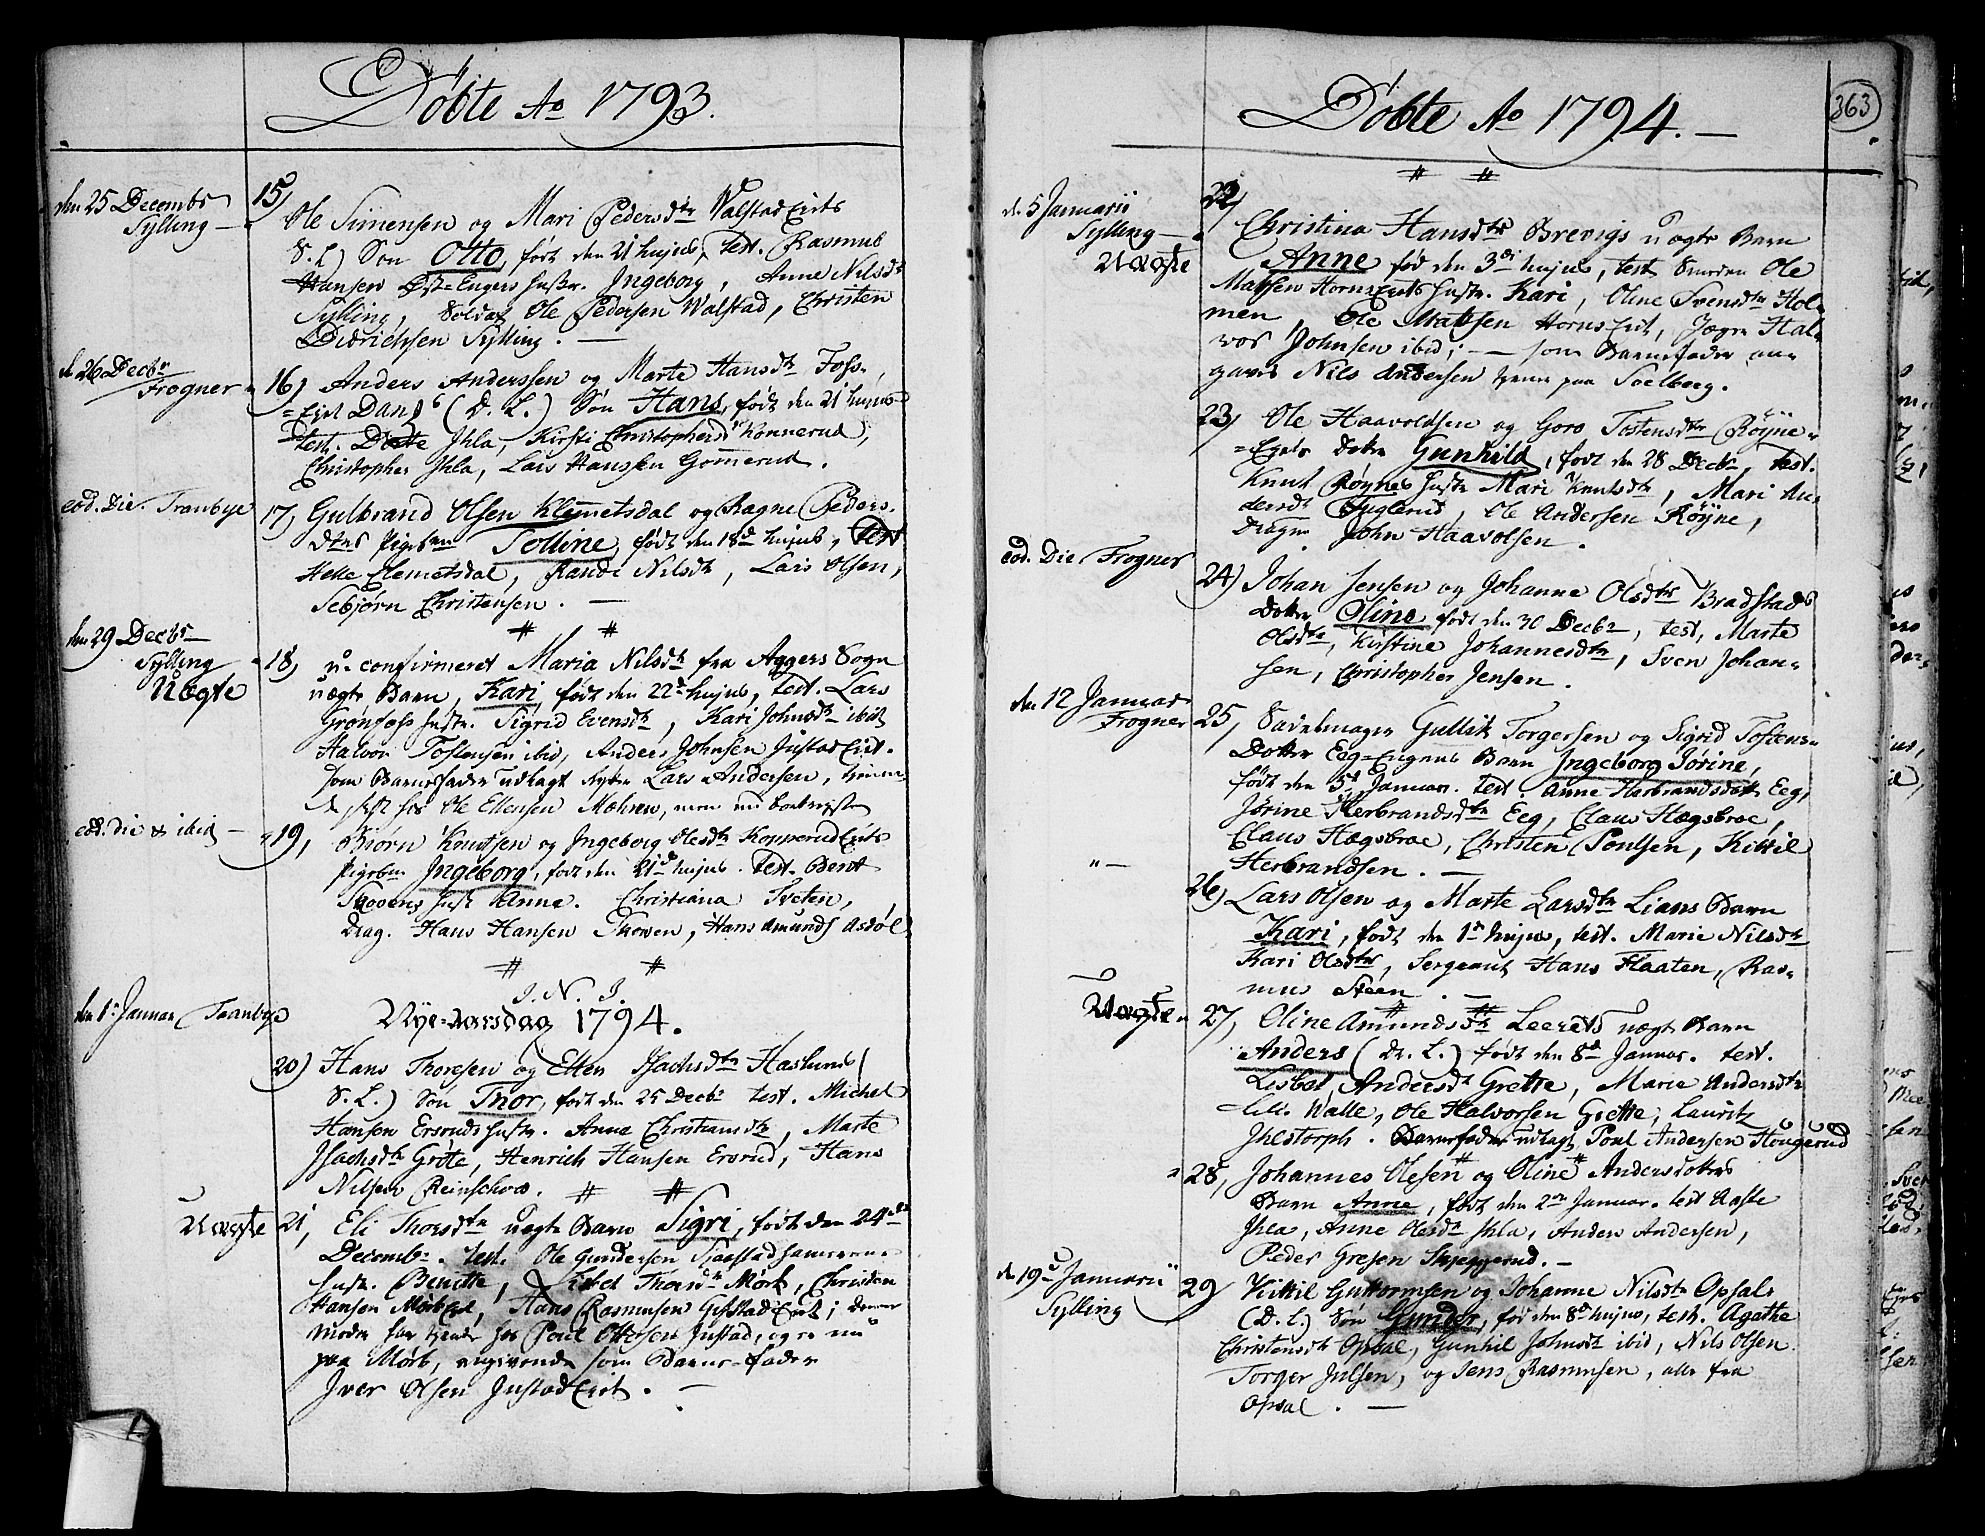 Döbte Ao 1793.
den 25 Decembr
Sylling —
15)
Ole Simensen og Mari Pedersdtr Walstad Eiets
S. L) Søn Otto, født den 21 hujus, test. Rasmus
Hansen Øst=Engers hustr. Ingeborg, Anne Nilsdtr
Sylling, Soldat Ole Pedersen Walstad, Christen
Didrichsen Sylling. —
d 26 Decbr
Frogner
16) Anders Anderssen og Marte Hansdtr Foss-
=Eiet (D. L.) Søn Hans, født den 21 hujus
test. Dorte Ihla, Kirsti Christophersd Konnerud,
Christopher Ihla, Lars Hanssen Gomerud.
eod. Die. Tranbye
17, Gulbrand Olsen Klemetsdal og Ragne Peders-
dtrs Pigebn Tolline, født den 18d hujus, test
Helle Clemetsdal, Rande Nilsdtr, Lars Olsen,
Sebjørn Christensen. —
# #
den 29 Decbr
Sylling
Uægte
18, u-confirmeret Maria Nilsdtr fra Aggers Sogn
uægte Barn, Kari, født den 22d hujus, test. Lars
Grønfoss hustr. Sigrid Evensdtr, Kari Johnsdtr ibid
Halvor Tostensen ibid, Anders Johnsen Justad Eiet.
som Barnefader udlagt Lars Andersen, tjenen-
de sidst hos Ole Ellensen Mæhren, men nu bortrejst
eod. die & ibid —
19, Biørn Knutsen og Ingeborg Olesdtr Kopperud Eiets
Pigebn Ingeborg, født den 21d hujus. test. Bent
Skovens hust Anna. Christiana Sveten,
Drag. Hans Hansen Skoven, Hans Amunds Asdøl
# #
J. N. J.
den 1s Januar Tranbye
Nye=Aarsdag 1794.
20) Hans Thoresen og Ellen Isachsdtr Haslund
S. L.) Søn Thor, født den 25 Decbr test. Michel
Hansen Ersruds hustr. Anna Christiansdtr, Marte
Isachsdtr Gröte, Henrich Hansen Ersrud, Hans
Nilsen Reinschou.
# #
Uægte
21, Eli Thorsdtr uægte Barn Sigri, født den 24de
Decembr. test. Ole Gundersen
hustr. Benette, Lisbet Thorsdtr Mørk, Christen
Hansen Mørk, Hans Rasmusen Gifstad Eiet; denne
Moder har tjent hos Poul Ottersen Justad, og er nu
paa Mørk, angivende som Barne-fader
Iver Olsen Justad Eiet. —
Döbte Ao 1794. —
363
# #
d. 5 Januarii
Sylling —
Uægte
22,
Christina Hansdtr Brevigs uægte Barn
Anne fød den 3di hujus, test Smeden Ole
Matsen Horns Eiets hustr. Kari, Oline Svensdtr Hol-
men, Ole Matsen Horns Eiet, Jægr Hal-
vor Johnsen ibid; — som Barnefader an-
gaves Nils Andersen tjener paa Soelberg.
23, Ole Haavoldsen og Goro Tostensdtr Røyne-
=Egets dotter Gunhild, født den 28 Decbr, test.
Knut Røynes hustr Mari Knutsdtr, Mari An-
dersdtr Fuglerud, Ole Andersen Røyne,
Dragon John Haavolsen.
eod. Die Frogner
24) Johan Jensen og Johanne Olsdtrs Bradstads
Dotter Oline, født den 30 Decbr, test, Marte
Olsdtr, Kirstine Johannesdtr, Sven Johan-
sen, Christopher Jensen.
den 12 Januar
Frogner
25, Sadelmager Gullik Torgersen og Sigrid Tostens-
Dotter Eeg=Engens Barn Ingeborg Jørine,
født den 5d Januar. test. Anne Harbrandsdotr Eeg,
Jørine Herbrandsdtr Eeg, Claus Hægsbroe,
Claus Hægsbroe, Christen Poulsen, Kittil
Herbrandsen. —
„ —
26, Lars Olsen og Marte Larsdtr Lians Barn
Kari, født den 1st hujus, test. Marie Nilsdtr
Kari Olsdtr, Sergeant Hans Flaaten, Ras-
mus Steen. —
# #
Uægte
27, Oline Amundsdtr Leerets uægte Barn
Anders (D. L.) født den 8d Januar. test.
Lisbet Andersdtr Grette, Marie Andersdtr
Lilie Walle, Ole Halvorsen Grette, Lauritz
Ihlestorph. Barnefader udlagt Poul Andersen Hougerud
# #
28, Johannes Olesen og Oline Andersdotters
Barn Anne, født den 2en Januar. test Aaste
Ihla, Anne Olesdtr Ihla, Anders Andersen,
Peder Gresen Skjeggerud. —
d. 19d Januarii
Sylling
29 Kittil Guttormsen og Johanne Nilsdtr Opsal-
(D. L.) Søn Gunder, fød den 8d hujus, test. Agathe
Christensdtr Opsal, Gunhil Johnsdtr ibid, Nils Olsen
Torger Julsen, og Jens Rasmusen, alle fra
Opsal. —